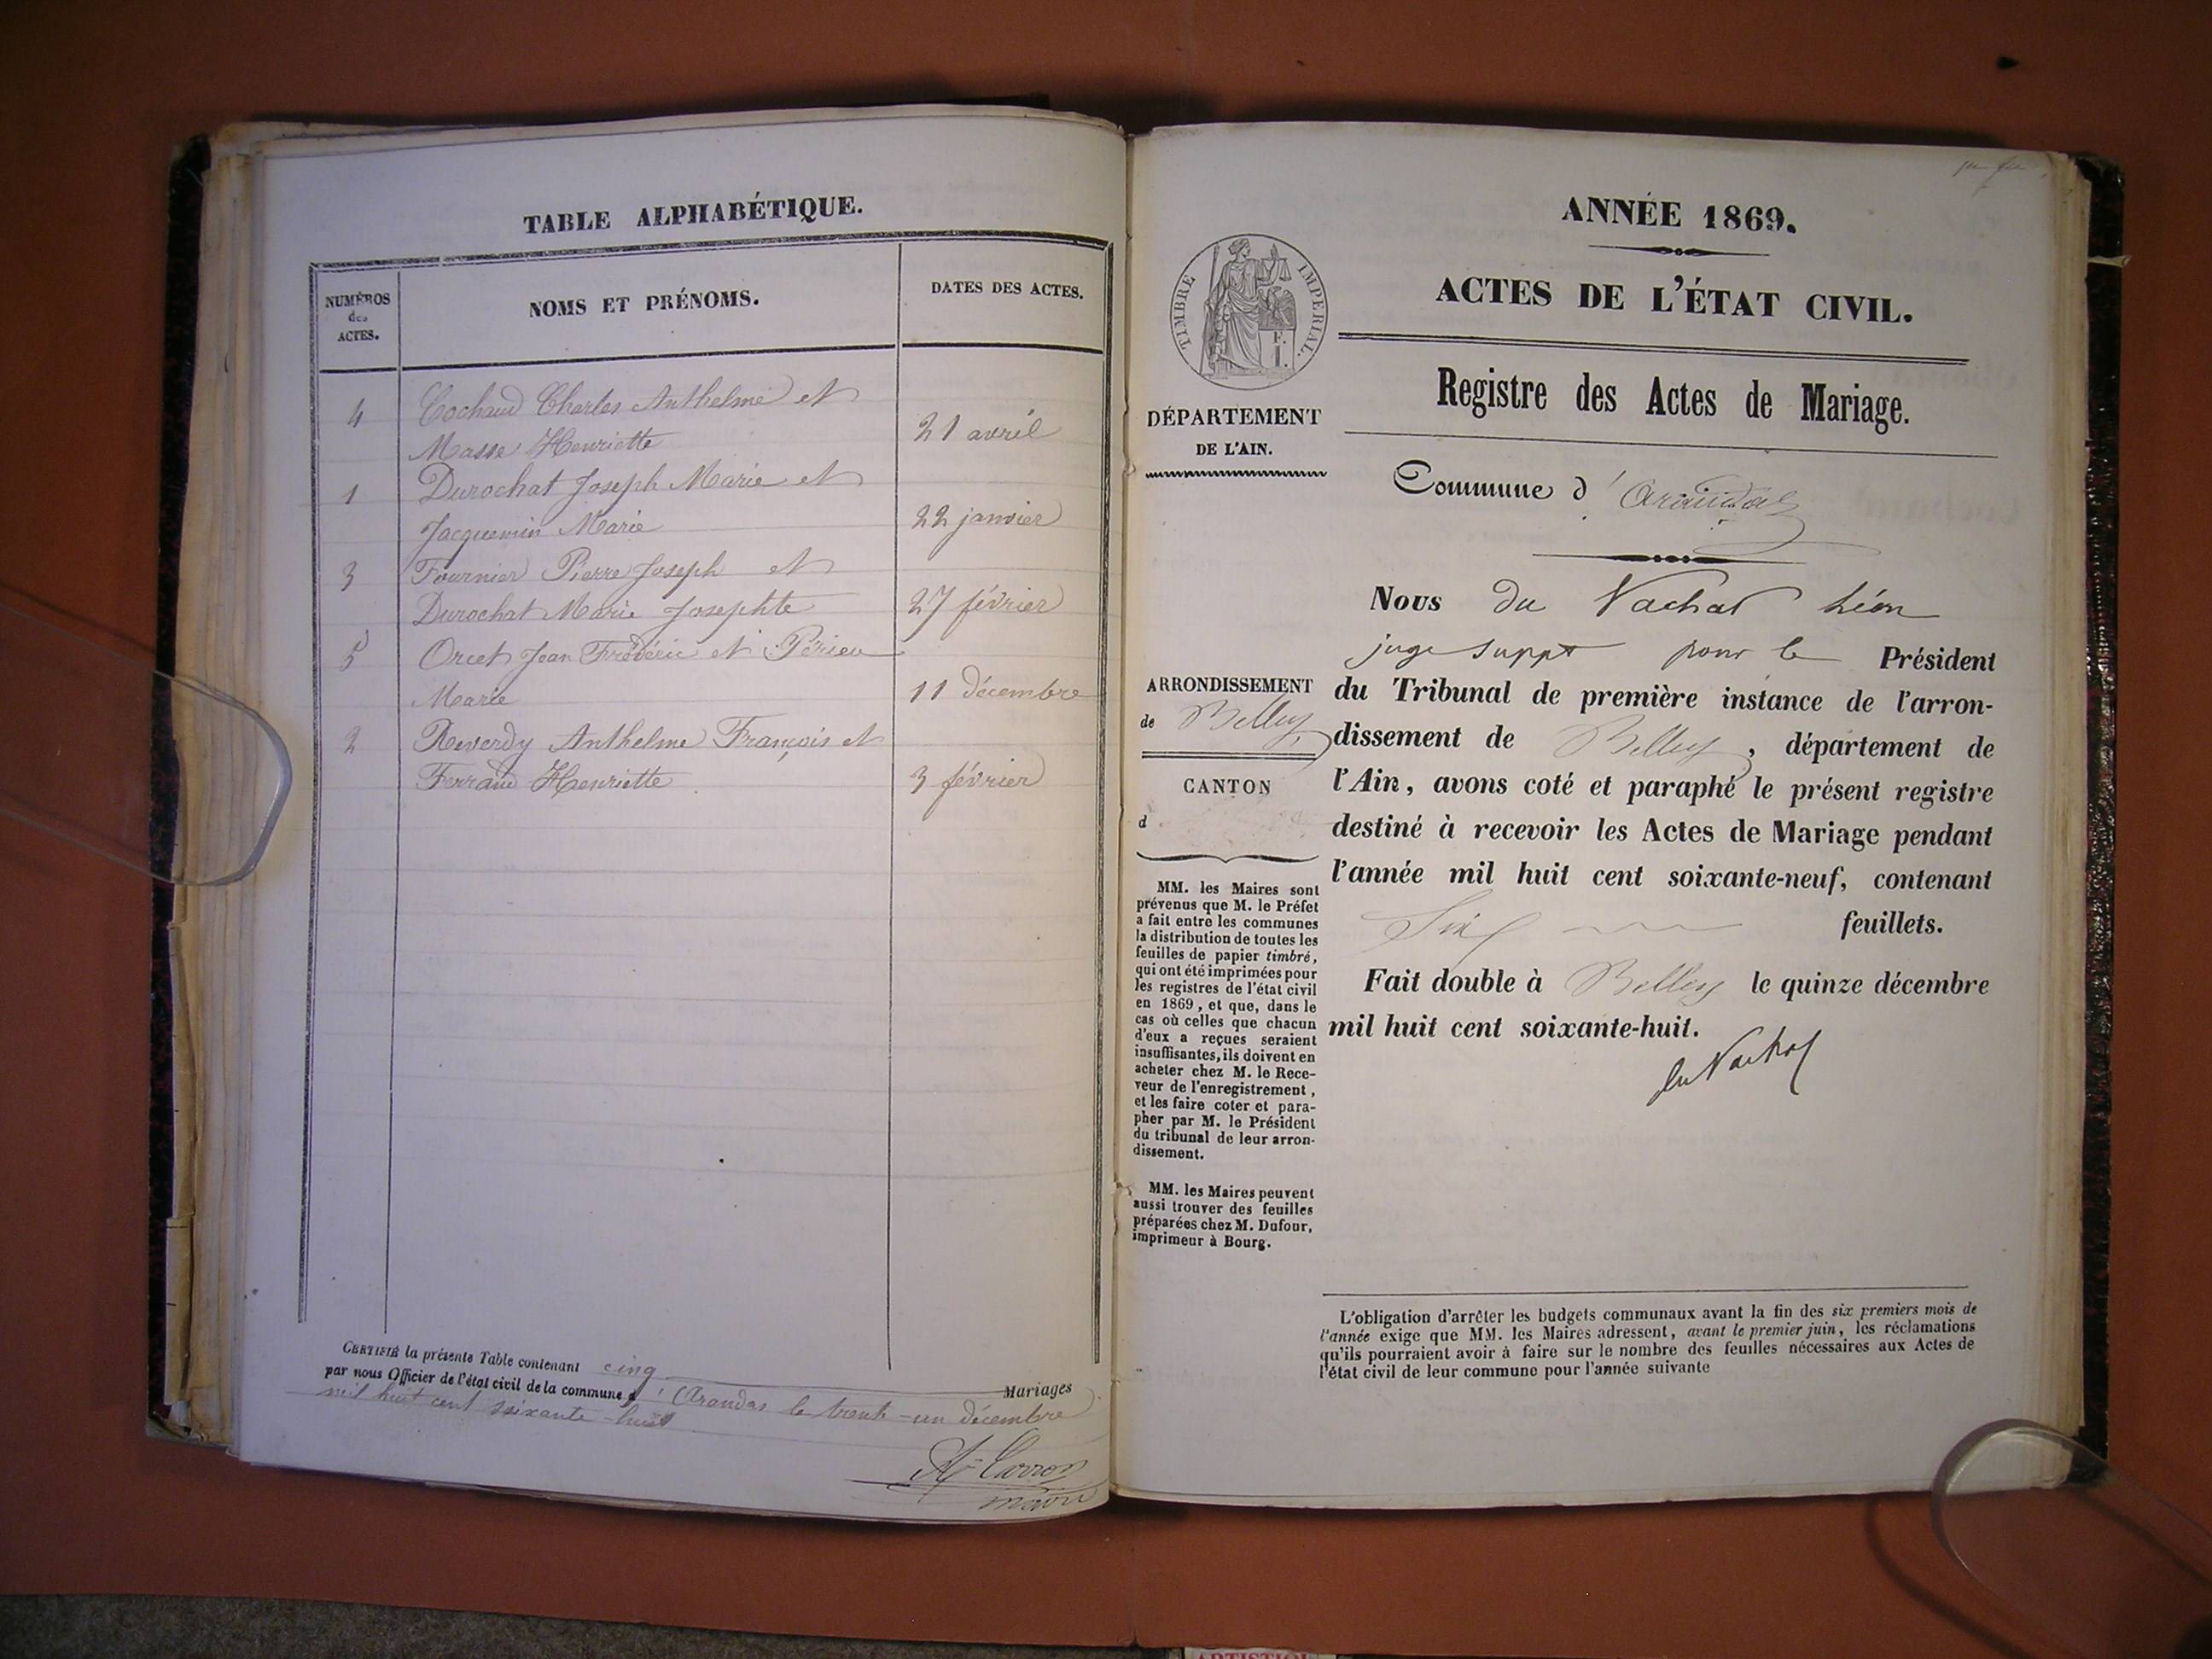 TABLE ALPHABÉTIQUE.
NUMÉROS
des
ACTES.
NOMS ET PRÉNOMS.
DATES DES ACTES.
4 Cochaud Charles Anthelme et
Masse Henriette 21 avril
1 Durochat Joseph Marie et
Jacquemin Marie 22 janvier
3 Fournier Pierre Joseph et
Durochat Marie Josephte 27 février
5 Orcet Jean Frédéric et Périeu
Marie 11 décembre
2 Reverdy Anthelme François et
Ferrand Henriette 3 février
CERTIFIÉ la présente Table contenant cinq Mariages
par nous Officier de l'état civil de la commune d'Arandas le trente-un décembre
mil huit cent soixante-huit
Carron
maire
ANNÉE 1869.
ACTES DE L'ÉTAT CIVIL.
Registre des Actes de Mariage.
TIMBRE IMPÉRIAL.
E.
I.
DÉPARTEMENT
DE L'AIN.
ARRONDISSEMENT
de Belley
CANTON
d
MM. les Maires sont
prévenus que M. le Préfet
a fait entre les communes
la distribution de toutes les
feuilles de papier timbré,
qui ont été imprimées pour
les registres de l'état civil
en 1869, et que, dans le
cas où celles que chacun
d'eux a reçues seraient
insuffisantes, ils doivent en
acheter chez M. le Rece-
veur de l'enregistrement,
et les faire coter et para-
pher par M. le Président
du tribunal de leur arron-
dissement.
MM. les Maires peuvent
aussi trouver des feuilles
préparées chez M. Dufour,
imprimeur à Bourg.
Commune d'Arandas
Nous du Vachat Léon
juge suppt pour le Président
du Tribunal de première instance de l'arron-
dissement de Belley, département de
l'Ain, avons coté et paraphé le présent registre
destiné à recevoir les Actes de Mariage pendant
l'année mil huit cent soixante-neuf, contenant
Six feuillets.
Fait double à Belley le quinze décembre
mil huit cent soixante-huit.
du Vachat
L'obligation d'arrêter les budgets communaux avant la fin des six premiers mois de
l'année exige que MM. les Maires adressent, avant le premier juin, les réclamations
qu'ils pourraient avoir à faire sur le nombre des feuilles nécessaires aux Actes de
l'état civil de leur commune pour l'année suivante